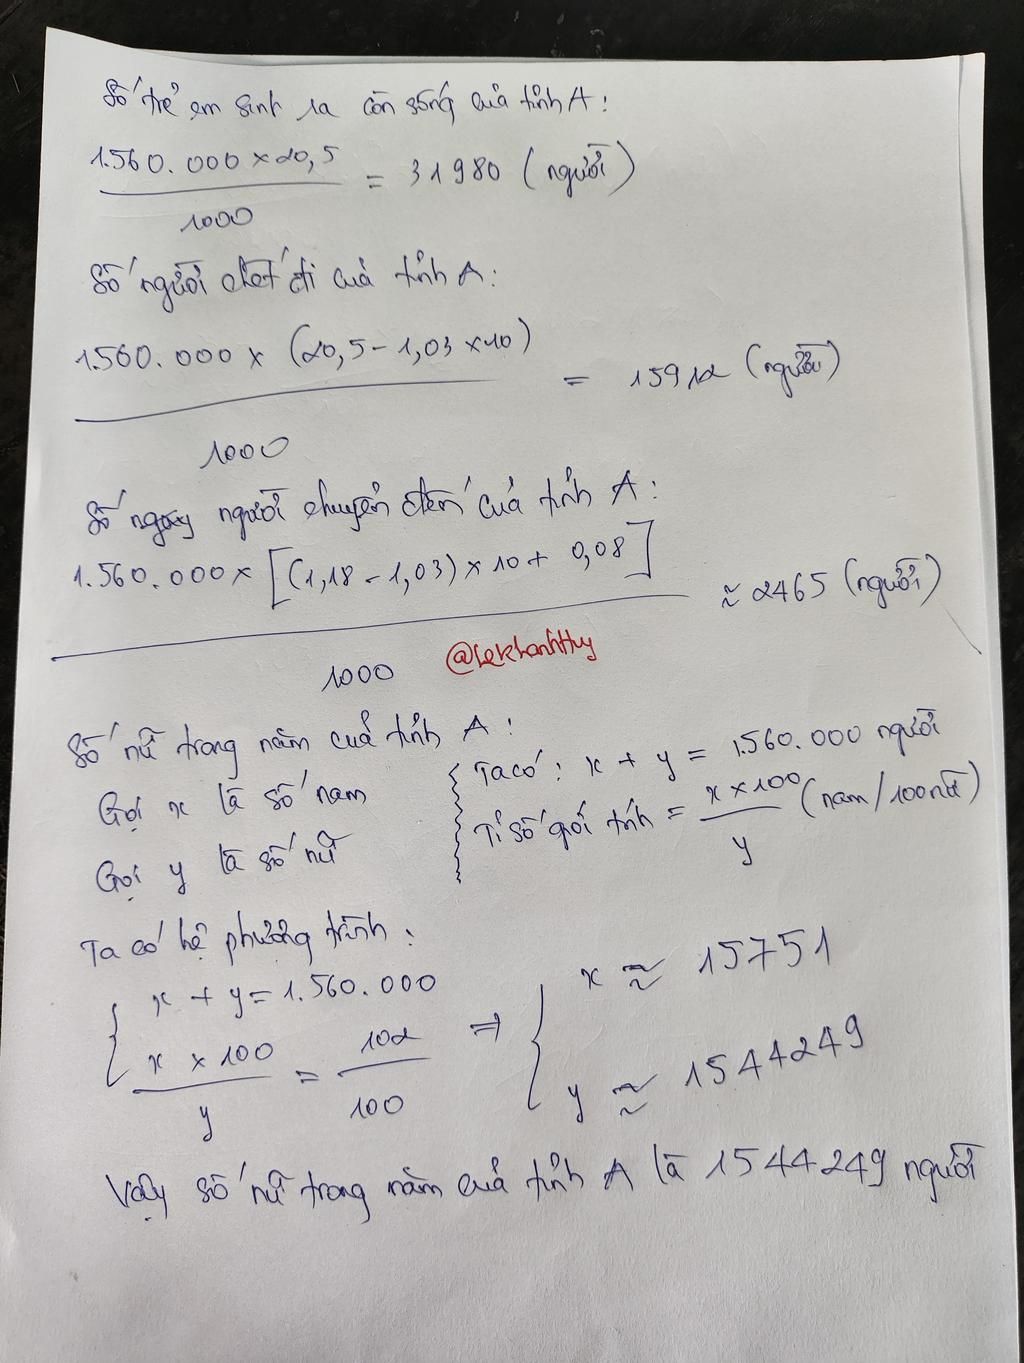 Số trẻ em sinh ra còn sống của tỉnh A:
1.560.000 × 20,5
1000
= 31980 (người)
Số người chết đi của tỉnh A:
1.560.000 × (20,5 - 1,03 × 10)
1000
= 15912 (người)
Số người chuyển đến của tỉnh A:
1.560.000 × [(1,18 - 1,03) × 10 + 0,08]
1000
≈ 2465 (người)
@lekhanhthy
Số nữ trong năm của tỉnh A:
Gọi x là số nam
Gọi y là số nữ
Ta có: x + y = 1.560.000 người
Tỉ số giới tính = x × 100 / y (nam/100 nữ)
Ta có hệ phương trình:
x + y = 1.560.000
x × 100 / y = 102 / 100
⇒ x ≈ 15751
y ≈ 1544249
Vậy số nữ trong năm của tỉnh A là 1544249 người